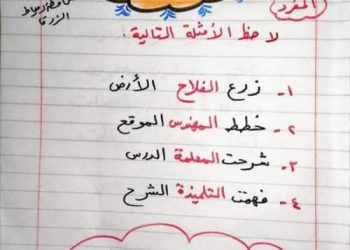 المفرد
الزرقا
لاحظ الأمثلة التالية:
١- زرع الفلاح الأرض
٢- خطط المهندس الموقع
٣- شرحت المعلمة الدرس
٤- فهمت التلميذة الشرح